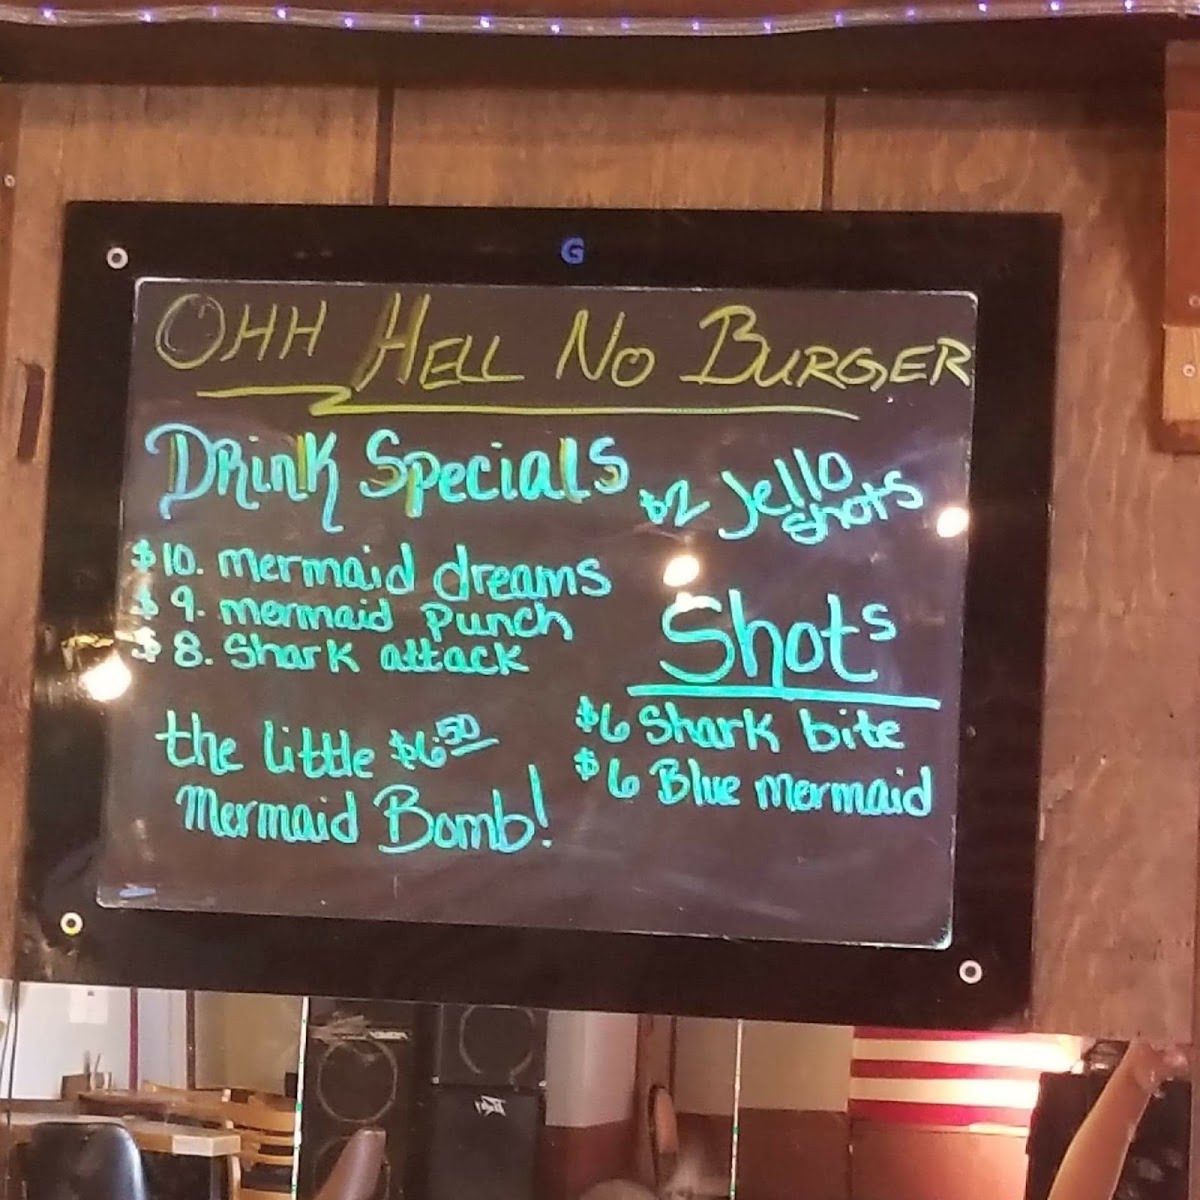 G
OHH HELL NO BURGER
Drink Specials
$10. mermaid dreams
$9. mermaid punch
$8. Shark attack
the little $6.50
Mermaid Bomb!
$2 Jello
shots
Shots
$6 Shark bite
$6 Blue mermaid